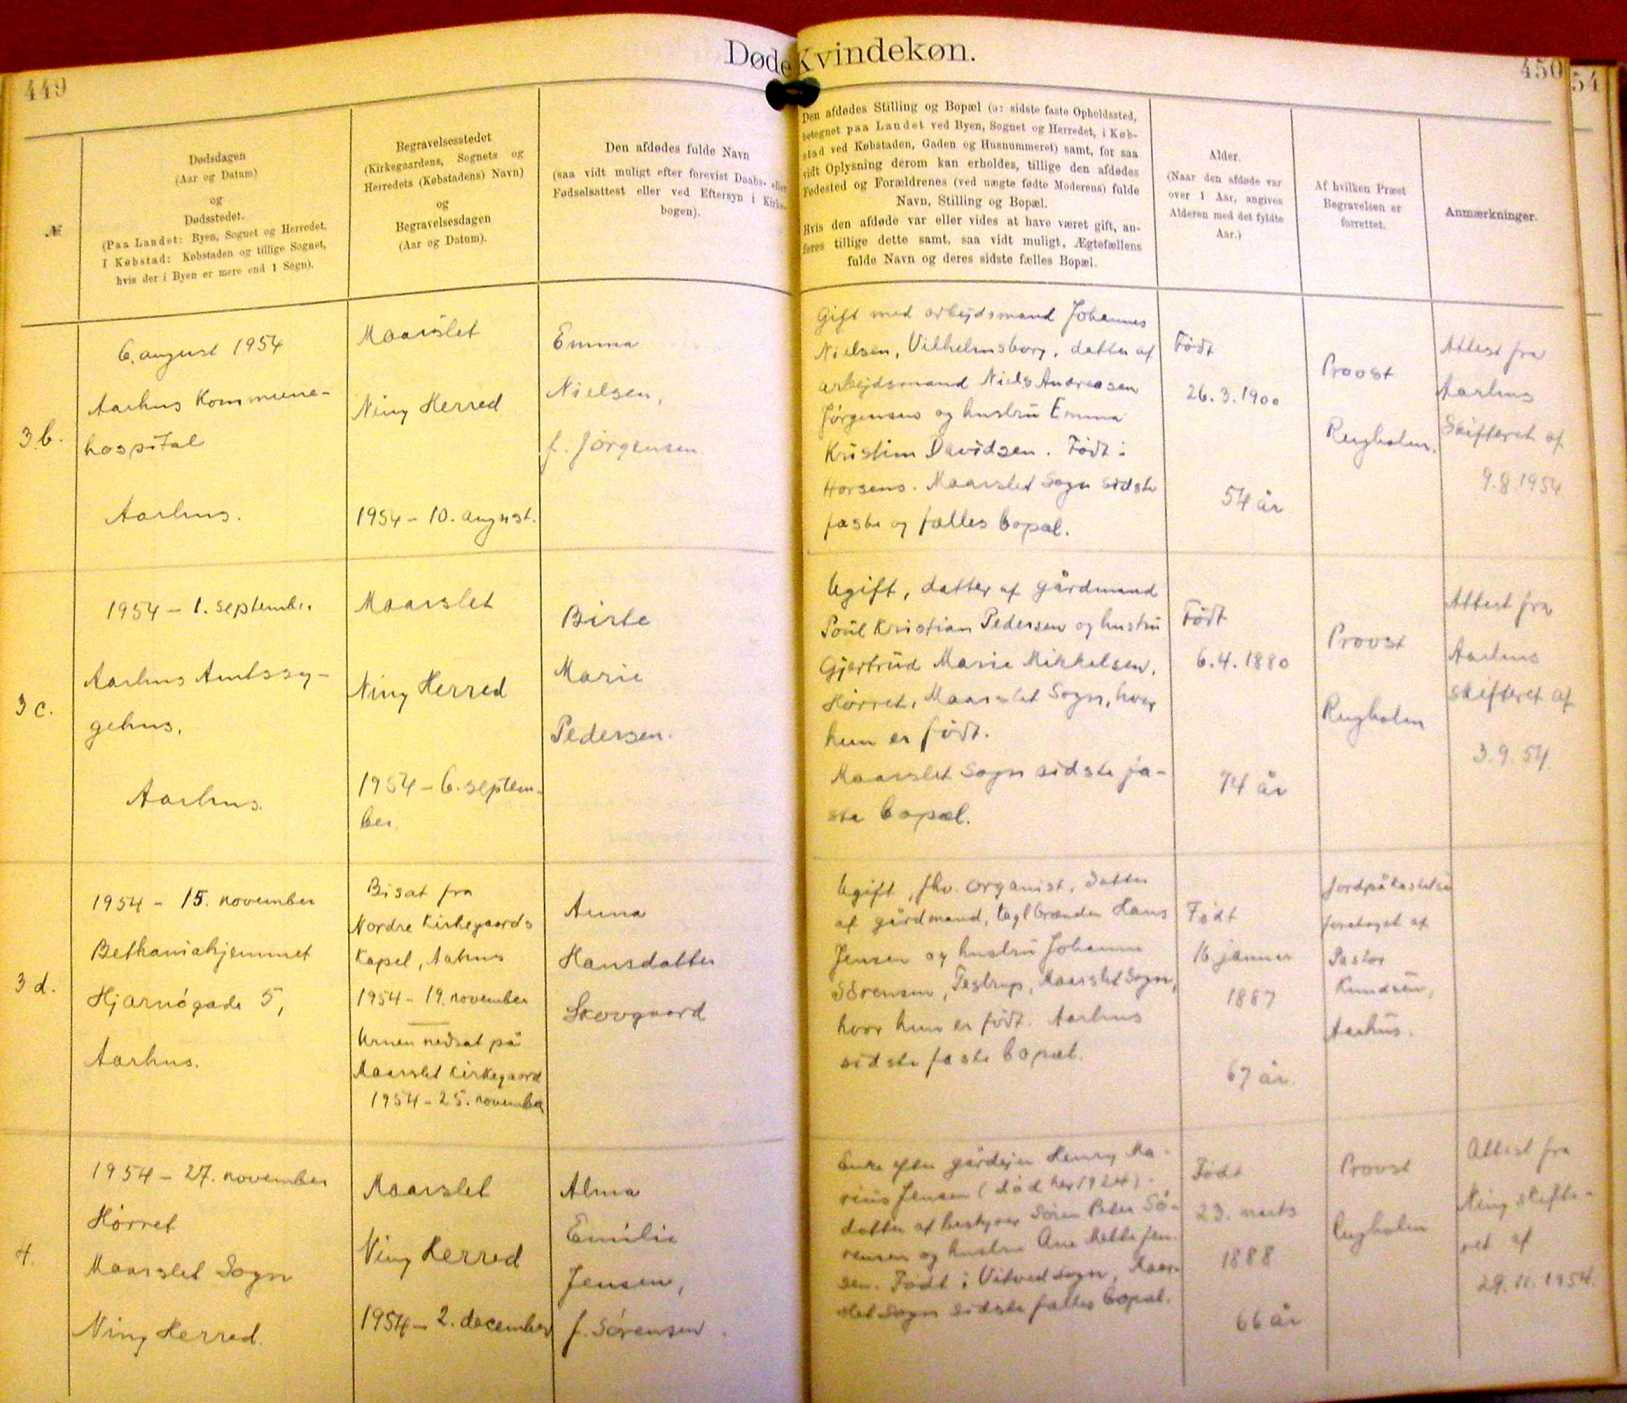 449
Døde Kvindekøn.
450
54
№
Dødsdagen
(Aar og Datum)
og
Dødsstedet.
(Paa Landet: Byen, Sognet og Herredet.
I Købstad: Købstaden og tillige Sognet,
hvis der i Byen er mere end 1 Sogn).
Begravelsesstedet
(Kirkegaardens, Sognets og
Herredets (Købstadens) Navn)
og
Begravelsesdagen
(Aar og Datum).
Den afdødes fulde Navn
(saa vidt muligt efter forevist Daabs- eller
Fødselsattest eller ved Eftersyn i Kirke-
bogen).
Den afdødes Stilling og Bopæl (ɔ: sidste faste Opholdssted,
betegnet paa Landet ved Byen, Sognet og Herredet, i Køb-
stad ved Købstaden, Gaden og Husnummeret) samt, for saa
vidt Oplysning derom kan erholdes, tillige den afdødes
Fødested og Forældrenes (ved uægte fødte Moderens) fulde
Navn, Stilling og Bopæl.
Hvis den afdøde var eller vides at have været gift, an-
føres tillige dette samt, saa vidt muligt, Ægtefællens
fulde Navn og deres sidste fælles Bopæl.
Alder.
(Naar den afdøde var
over 1 Aar, angives
Alderen med det fyldte
Aar.)
Af hvilken Præst
Begravelsen er
forrettet.
Anmærkninger.
3.b.
6. august 1954
Aarhus Kommune-
hospital
Aarhus.
Maarslet
Ning Herred
1954 - 10. august.
Emma
Nielsen,
f. Jørgensen
Gift med arbejdsmand Johannes
Nielsen, Vilhelmsborg, datter af
arbejdsmand Niels Andreasen
Jørgensen og hustru Emma
Kristine Davidsen. Født i
Horsens. Maarslet Sogn sidste
faste og fælles bopæl.
Født
26.3.1900
54 år
Provst
Rugholm.
Attest fra
Aarhus
Skifteret af
9.8.1954
3 c.
1954 - 1. september
Aarhus Amtssy-
gehus,
Aarhus.
Maarslet
Ning Herred
1954 - 6. septem-
ber
Birte
Marie
Pedersen.
Ugift, datter af gårdmand
Poul Kristian Pedersen og hustru
Gjertrud Marie Mikkelsen,
Hørret, Maarslet Sogn, hvor
hun er født.
Maarslet Sogn sidste fa-
ste bopæl.
Født
6.4.1880
74 år
Provst
Rugholm
Attest fra
Aarhus
skifteret af
3.9.54
3 d.
1954 - 15. november
Bethaniahjemmet
Hjarnøgade 5,
Aarhus.
Bisat fra
Nordre Kirkegaards
Kapel, Aarhus
1954 - 19. november
Urnen nedsat på
Maarslet Kirkegaard
1954 - 25. november
Anna
Hansdatter
Skovgaard
Ugift, fhv. organist, datter
af gårdmand, teglbrænder Hans
Jensen og hustru Johanne
Sørensen, Testrup, Maarslet Sogn,
hvor hun er født. Aarhus
sidste faste bopæl.
Født
16 januar
1887
67 år.
Jordpåkastelse
foretaget af
Pastor
Knudsen,
Aarhus.
4.
1954 - 27. november
Hørret
Maarslet Sogn
Ning Herred.
Maarslet
Ning Herred
1954 - 2. december
Alma
Emilie
Jensen,
f. Sørensen.
Enke efter gårdejer Henry Ma-
rius Jensen (død her 1924).
datter af bestyrer Søren Peter Sø-
rensen og hustru Ane Mette Jen-
sen. Født i Vitved Sogn, Maar-
slet Sogn sidste fælles bopæl.
Født
23. marts
1888
66 år
Provst
Rugholm
Attest fra
Ning skifte-
ret af
29.11.1954.